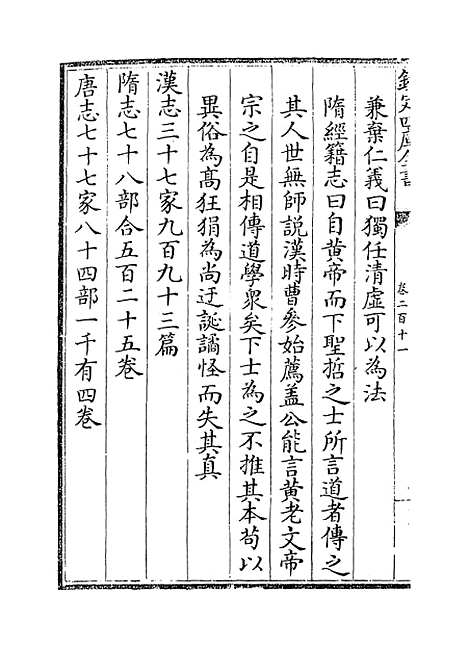 欽定四庫全書
卷二百十一
兼棄仁義曰獨任清虛可以為法
隋經籍志曰自黄帝而下聖哲之士所言道者傳之
其人世無師説漢時曹參始薦盖公能言黄老文帝
宗之自是相傳道學衆矣下士為之不推其本茍以
異俗為髙狂狷為尚迂誕譎怪而失其真
漢志三十七家九百九十三篇
隋志七十八部合五百二十五卷
唐志七十七家八十四部一千有四卷